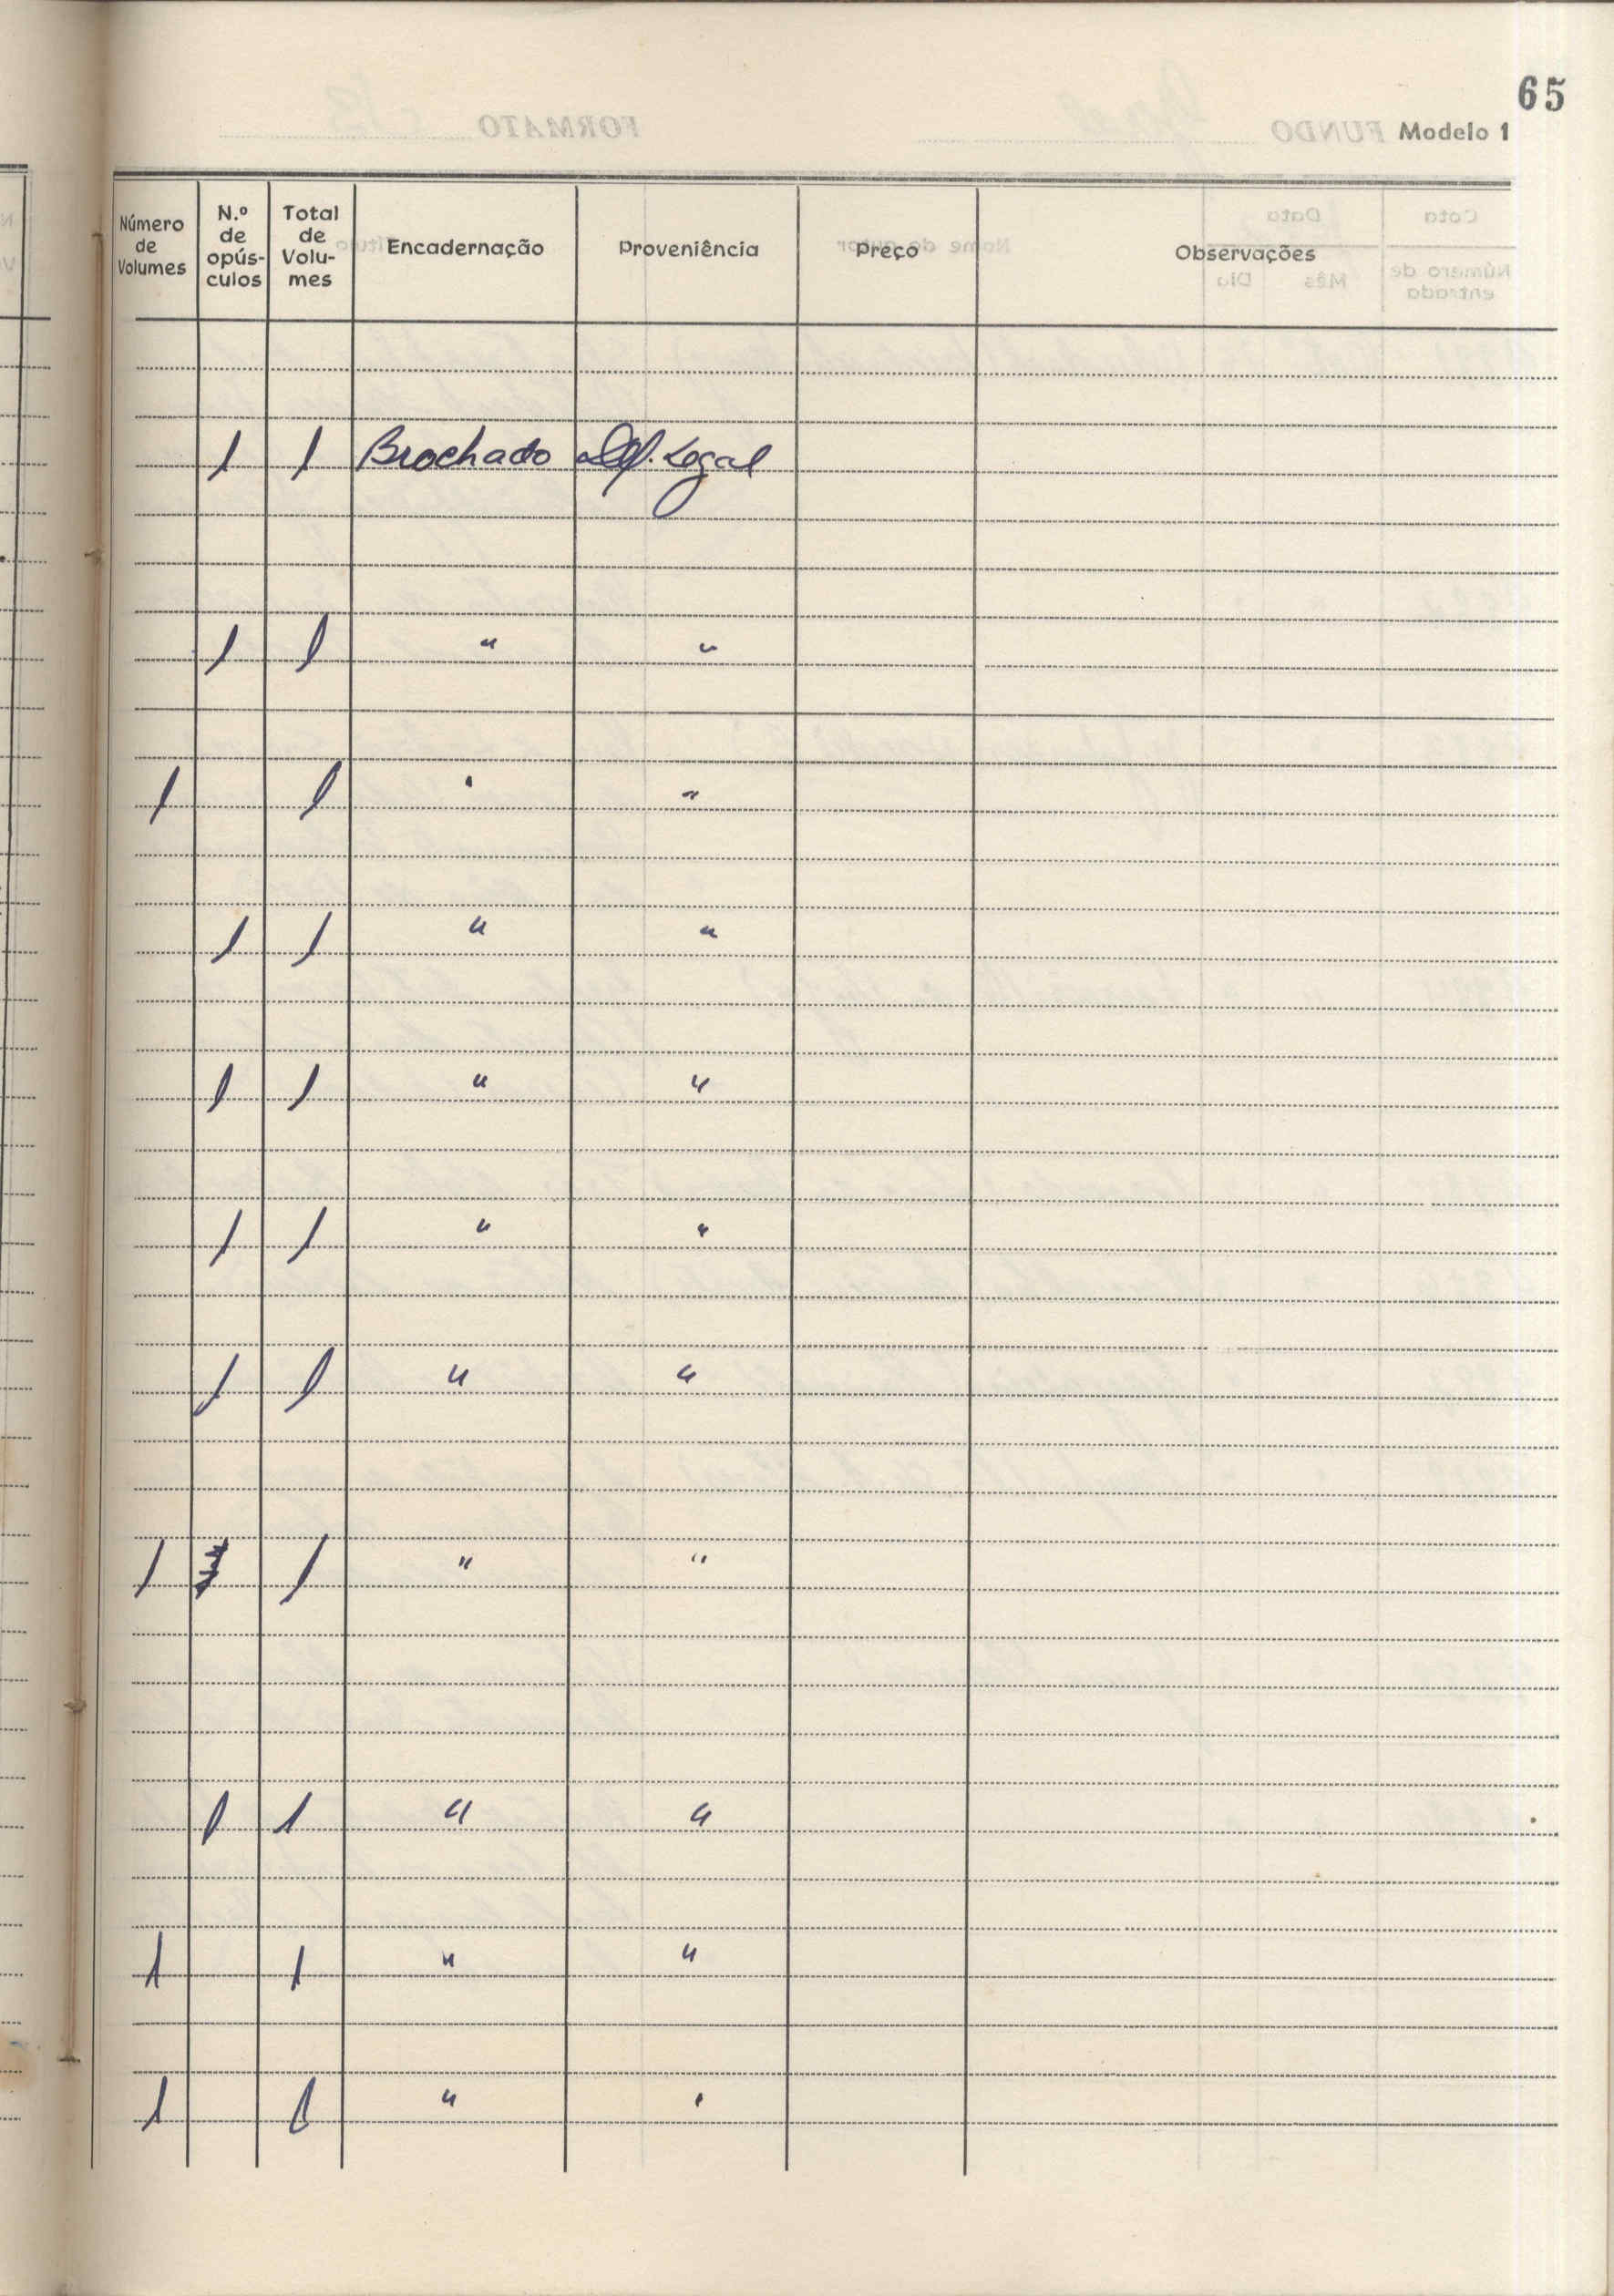 65
Modelo 1
Número de Volumes | N.º de opús-culos | Total de Volu-mes | Encadernação | Proveniência | Preço | Observações
1 | 1 | Brochado | Dep. Legal
1 | 1 | " | "
1 | 1 | " | "
1 | 1 | " | "
1 | 1 | " | "
1 | 1 | " | "
1 | 1 | " | "
1 | 1 | " | "
1 | 1 | " | "
1 | 1 | " | "
1 | 1 | " | "